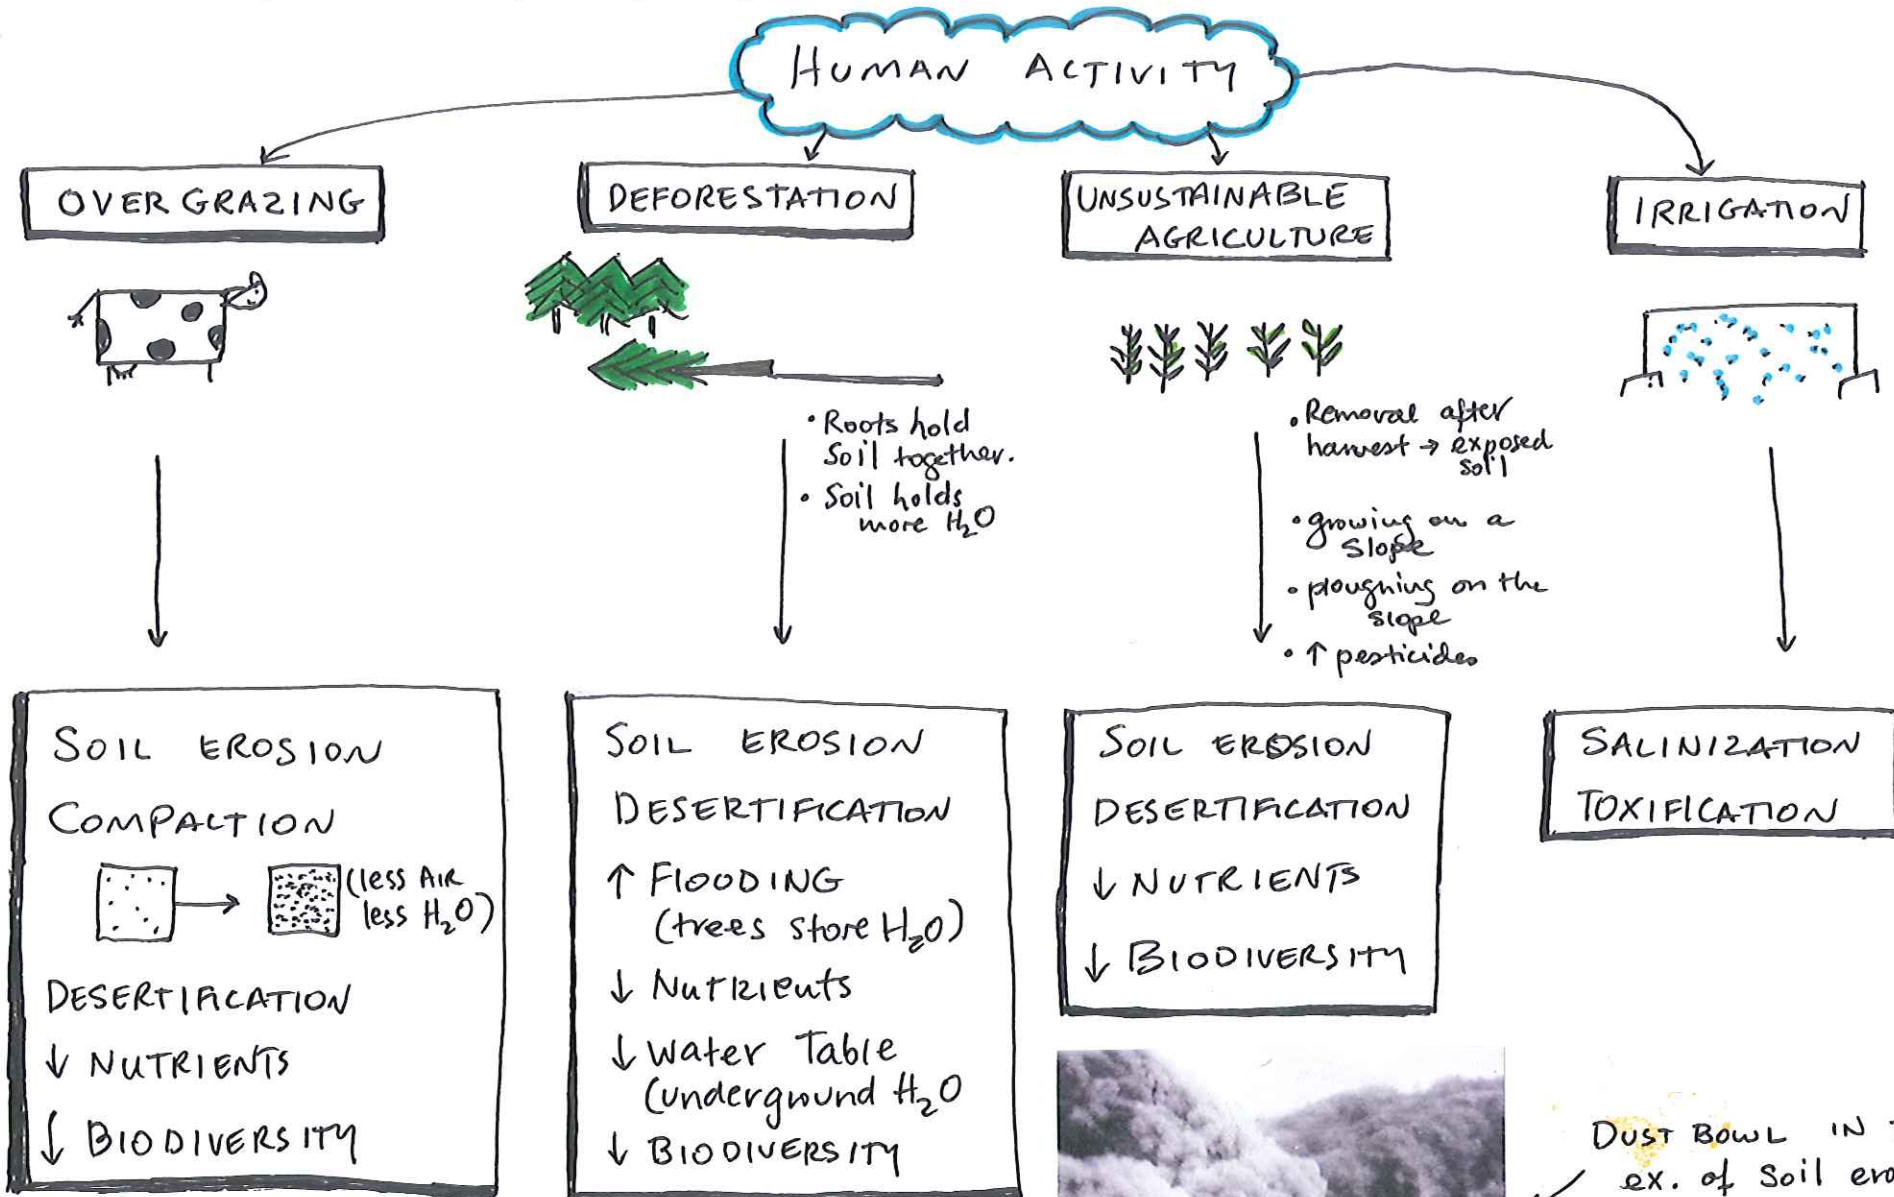 HUMAN ACTIVITY
OVER GRAZING
DEFORESTATION
UNSUSTAINABLE
AGRICULTURE
IRRIGATION
• Roots hold
Soil together.
• Soil holds
more H₂O
• Removal after
harvest → exposed
soil
• growing on a
slope
• ploughing on the
slope
• ↑ pesticides
SOIL EROSION
COMPACTION
(less AIR
less H₂O)
DESERTIFICATION
↓ NUTRIENTS
↓ BIODIVERSITY
SOIL EROSION
DESERTIFICATION
↑ FLOODING
(trees store H₂O)
↓ Nutrients
↓ Water Table
(underground H₂O
↓ BIODIVERSITY
SOIL EROSION
DESERTIFICATION
↓ NUTRIENTS
↓ BIODIVERSITY
SALINIZATION
TOXIFICATION
DUST BOWL IN
ex. of Soil ero